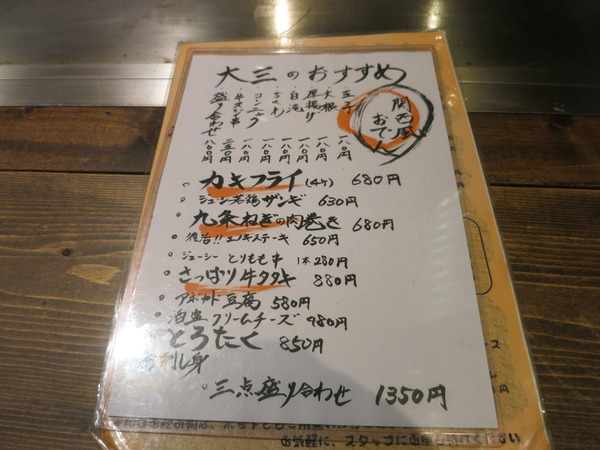 大三のおすすめ
関西風
おでん
玉子 一八〇円
大根 一八〇円
厚揚げ 一八〇円
白滝 一八〇円
ちくわ 一八〇円
コンニャク 一八〇円
牛スジ串
盛り合わせ 一八〇〇円
カキフライ(4ケ) 680円
ジューシー若鶏ザンギ 630円
九条ねぎの肉巻き 680円
復活!!エノキステーキ 650円
ジューシーとりもも串 1本280円
さっぱり牛タタキ 880円
アボカド豆腐 580円
酒盗クリームチーズ 980円
とろたく 850円
お刺し身
三点盛り合わせ 1350円
お気軽に、スタッフにお申し